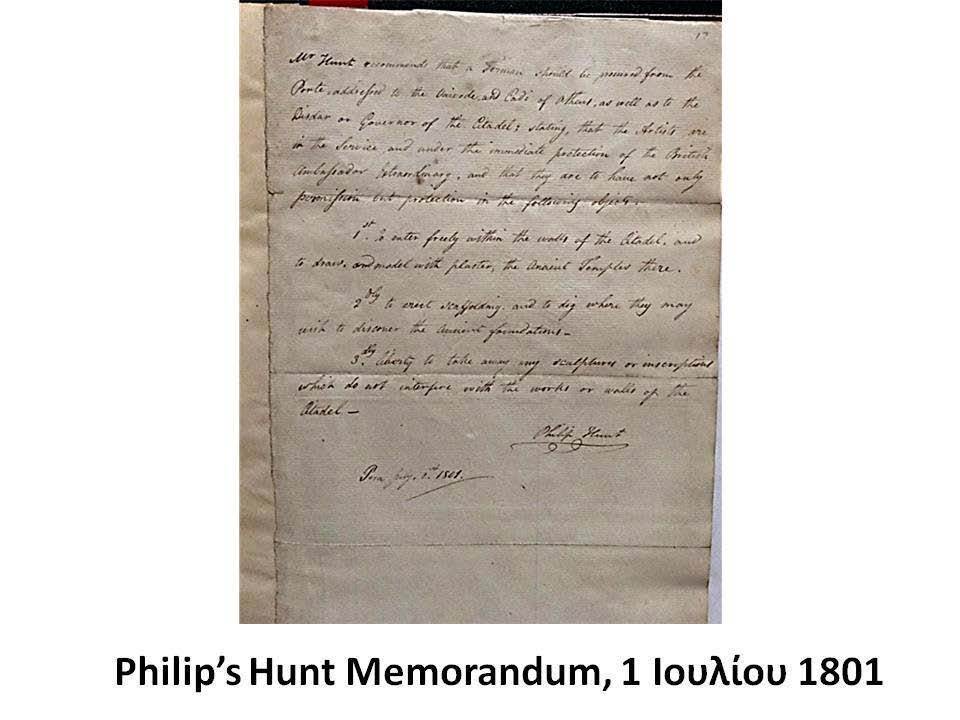 17
Mr Hunt recommends that a Firman should be procured from the
Porte, addressed to the Vaivode, and Cadi of Athens, as well as to the
Disdar or Governor of the Citadel; stating, that the Artists are
in the Service and under the immediate protection of the British
Ambassador Extraordinary, and that they are to have not only
permission but protection in the following objects.
1st. To enter freely within the walls of the Citadel, and
to draw, and model with plaster, the Ancient Temples there.
2dly to erect scaffolding, and to dig where they may
wish to discover the ancient foundations—
3dly. liberty to take away any sculptures or inscriptions
which do not interfere with the works or walls of the
Citadel —
Philip Hunt
Pera July. 1st. 1801.
Philip’s Hunt Memorandum, 1 Ιουλίου 1801